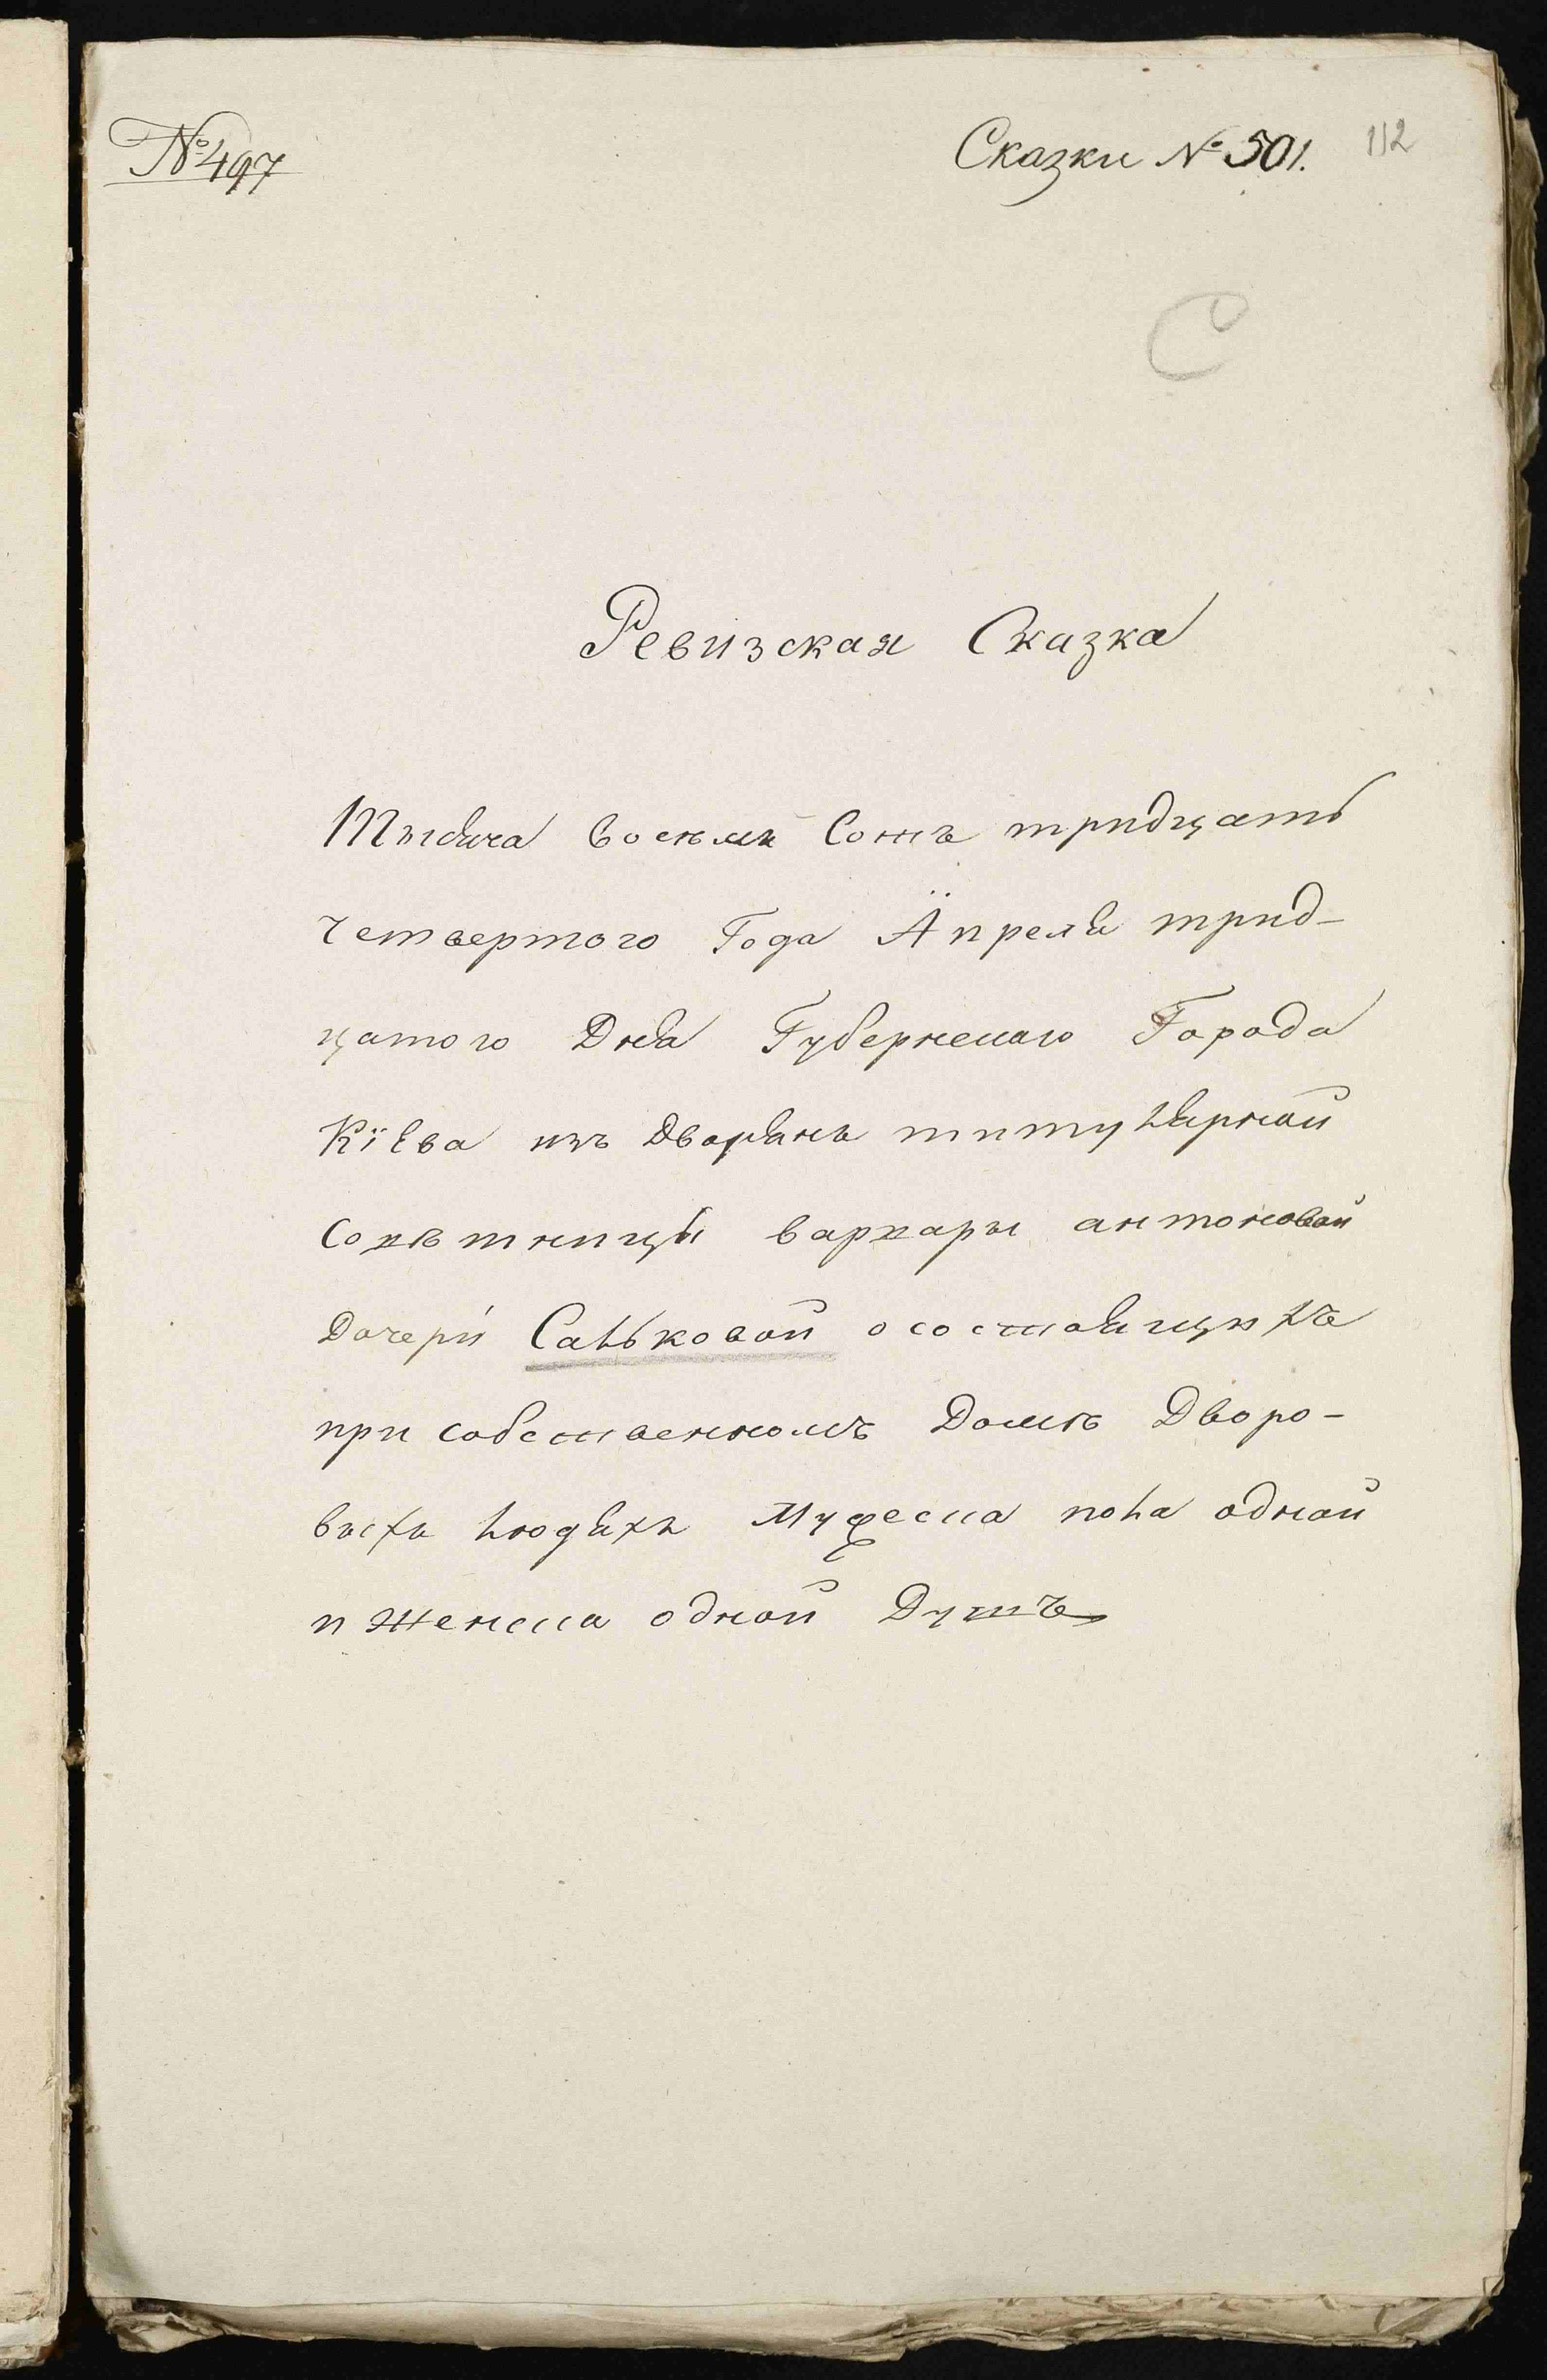 № 497
Сказки № 501. 112
С
Ревизская Сказка
Тысяча восемь Сотъ тридцать
Четвертого Года Апреля трид-
цатого Дня Губернскаго Города
Кіева изъ Дворянъ титулярной
Советницы варвары антоновой
Дочери Сальковой о состоящихъ
при собственномъ Доме Дворо-
выхъ людяхъ Мужеска пола одной
и Женска одной Душъ